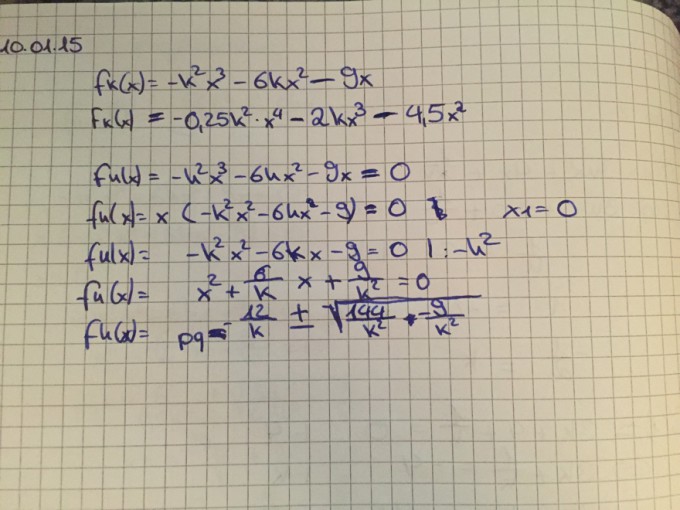 10.01.15
fk(x) = -k²x³ - 6kx² - 9x
Fk(x) = -0,25k²·x⁴ - 2kx³ - 4,5x²
fk(x) = -k²x³ - 6kx² - 9x = 0
fk(x) = x (-k²x² - 6kx² - 9) = 0 x1 = 0
fk(x) = -k²x² - 6kx - 9 = 0 | : -k²
fk(x) = x² + 6/k x + 9/k² = 0
fk(x) = pq = - 12/k ± √144/k² - 9/k²